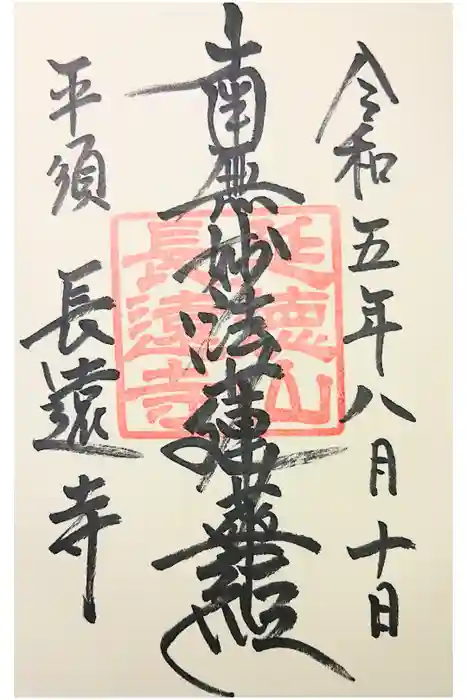 令和五年八月十日
南無妙法蓮華経
平須
長遠寺
延徳山
長遠寺